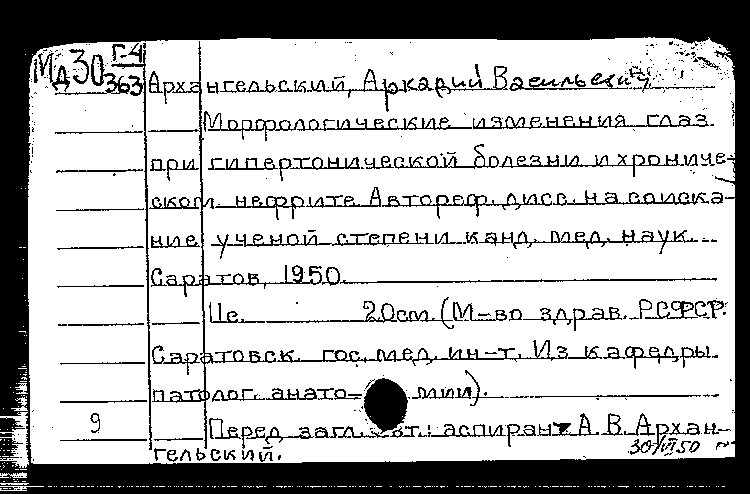 Мд30 Г-4
363
Архангельский, Аркадий Васильевич
Морфологические изменения глаз
при гипертонической болезни и хрониче-
ском нефрите. Автореф. дисс. на соиска-
ние ученой степени канд. мед. наук.
Саратов, 1950.
20см. (М-во здрав. РСФСР.
Саратовск. гос. мед. ин-т. Из кафедры
патолог. анато- мии).
9 Перед загл. авт.: аспирант А. В. Архан-
гельский.
30/VI 50